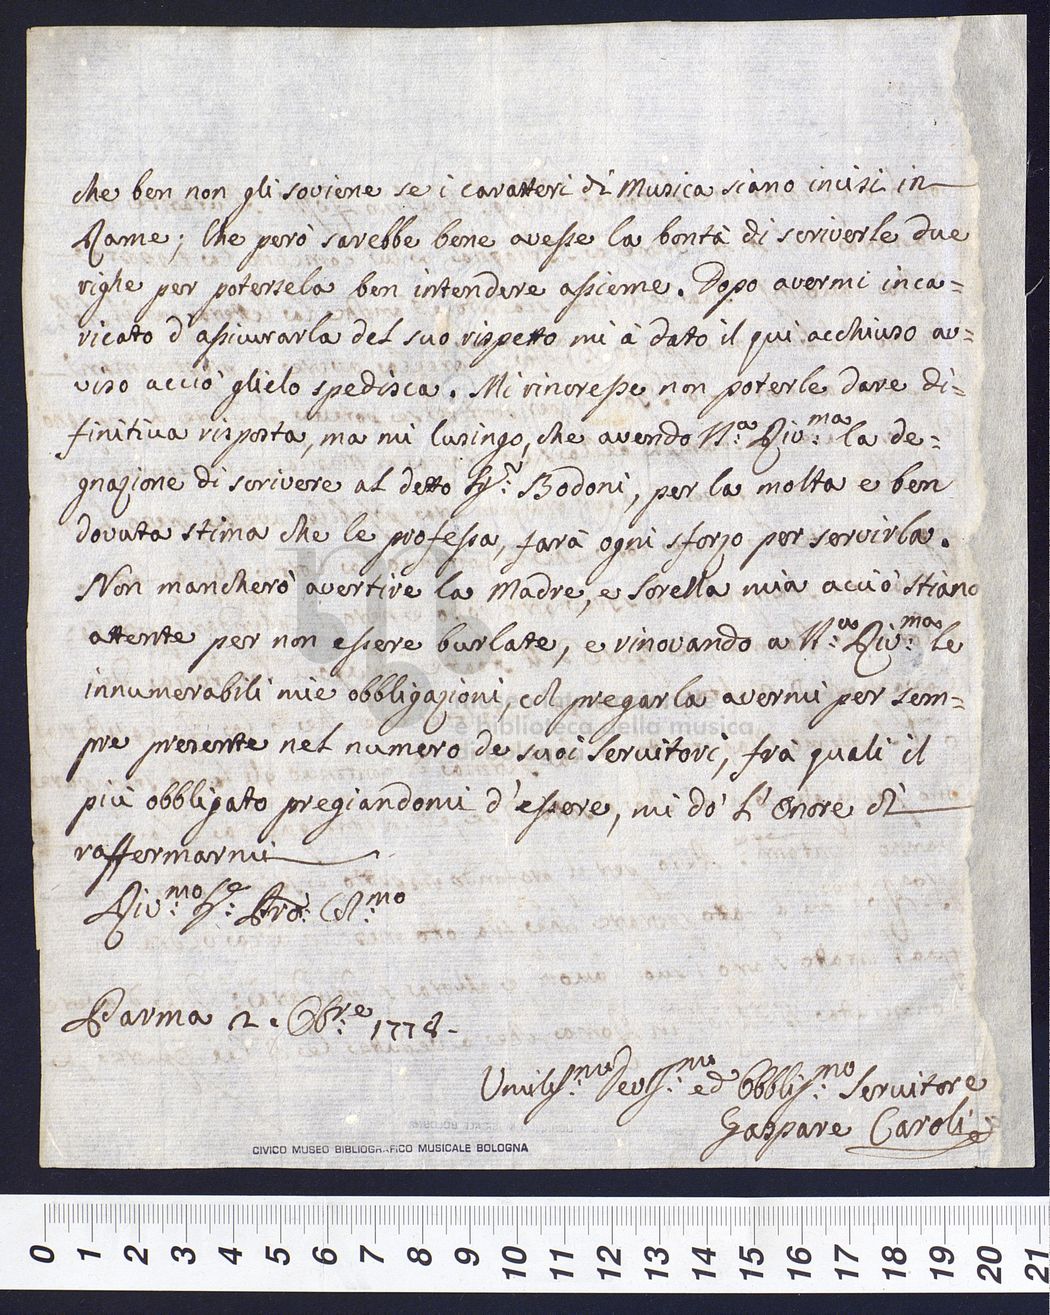 che ben non gli soviene se i caratteri di Musica siano incisi in
Rame; che però sarebbe bene avesse la bontà di scriverle due
righe per potersela ben intendere assieme. Dopo avermi inca=
ricato d'assicurarla del suo rispetto mi à dato il qui acchiuso av=
viso acciò glielo spedisca. Mi rincresse non poterle dare di=
finitiva risposta, ma mi lusingo, che avendo V.ra Riv.ma la de=
gnazione di scrivere al detto Sig.r Bodoni, per la molta e ben
dovuta stima che le professa, farà ogni sforzo per servirla.
Non mancherò avertire la Madre, e Sorella mia acciò stiano
attente per non essere burlate, e rinovando a V.ra Riv.ma le
innumerabili mie obbligazioni, col pregarla avermi per sem=
pre presente nel numero de suoi Servitori, frà quali il
più obbligato pregiandomi d'essere, mi dò l'Onore di
raffermarmi
Riv.mo P.e Pro: Col.mo
Parma 2. Obre 1778.
Umiliss.mo Devoss.mo ed Obbliss.mo Servitore
Gaspare Caroli
CIVICO MUSEO BIBLIOGRAFICO MUSICALE BOLOGNA
biblioteca della musica
0 1 2 3 4 5 6 7 8 9 10 11 12 13 14 15 16 17 18 19 20 21